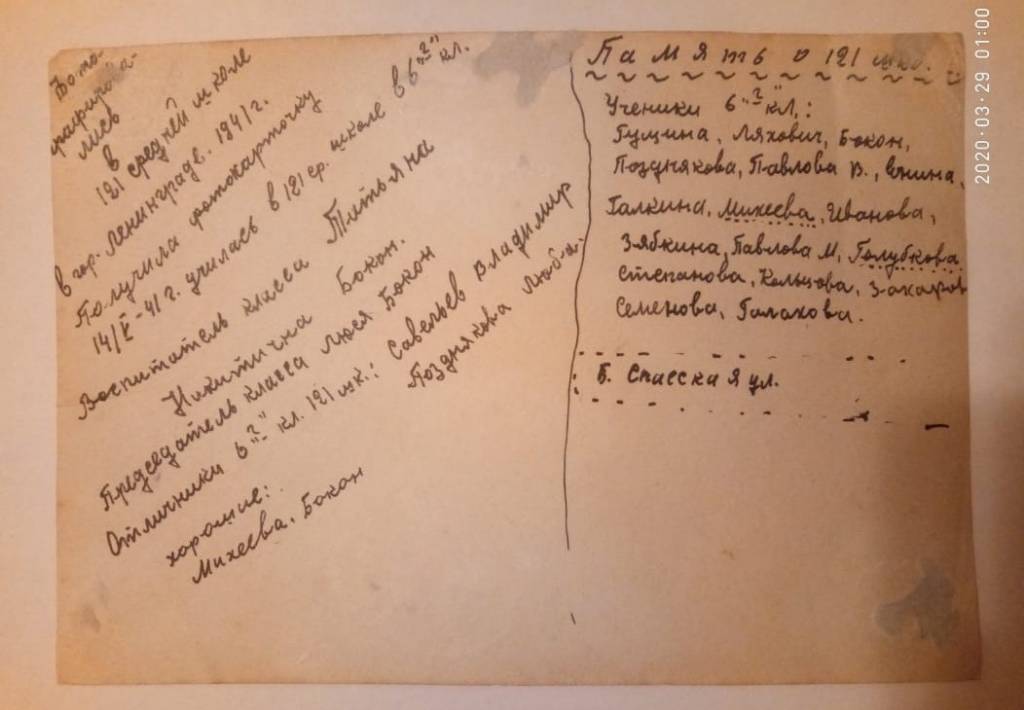 Фото-
графирова-
лись
в
121 средней школе
в гор. Ленинграде. 1941 г.
Получила фотокарточку
14/V-41 г. училась в 121 ср. школе в 6 "г" кл.
Воспитатель класса Татьяна
Никитична Бокон.
Председатель класса Люся Бокон
Отличники 6 "г" кл. 121 шк.: Савельев Владимир
Позднякова Люба.
хорошие:
Михеева. Бокон
Память о 121 шк.
Ученики 6 "г" кл.:
Гущина, Ляхович, Бокон,
Позднякова, Павлова В.,
Галкина, Михеева, Иванова,
Зябкина, Павлова М, Голубкова
Степанова, Кольцова, Захаров
Семенова, Галахова.
Б. Спасская ул.
2020·03·29 01:00